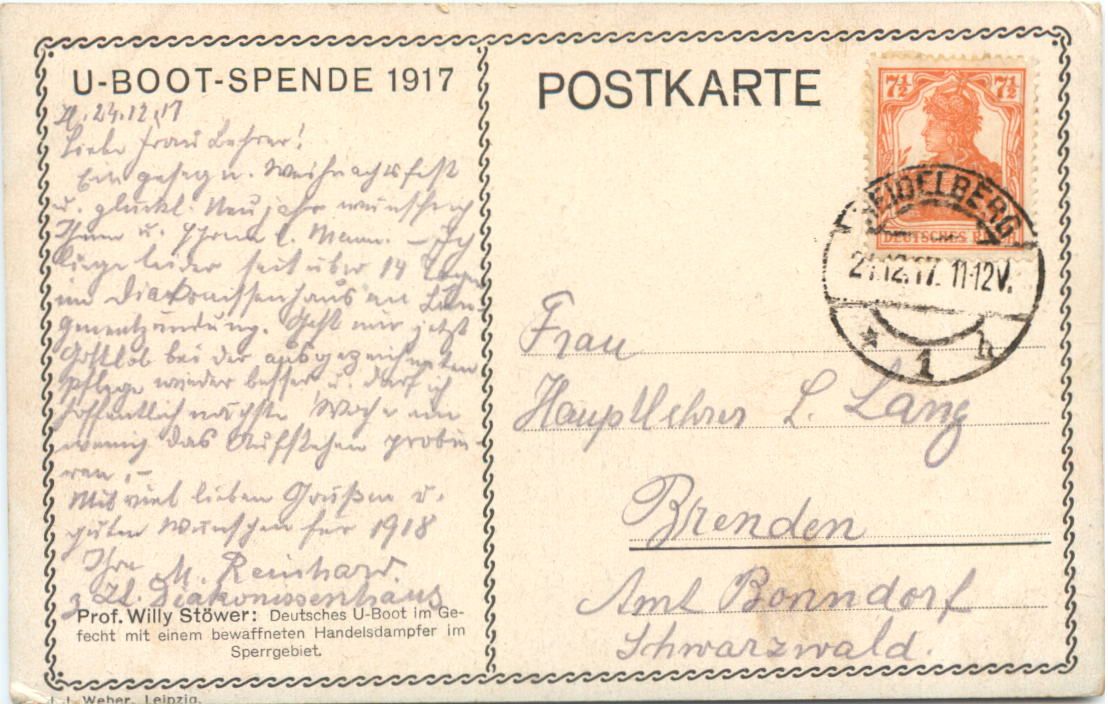 U-BOOT-SPENDE 1917
24.12.17
Liebe Frau Lehrer!
Ein gesegn. Weihnachtsfest
u. glückl. Neujahr wünsche ich
Ihnen u. Ihrem l. Mann. – Ich
liege leider seit über 14 Tagen
im Diakonissenhaus an Lun-
genentzündung. Geht mir jetzt
Gottlob bei der ausgezeichneten
Pflege wieder besser u. darf ich
hoffentlich nächste Woche ein
wenig das Aufstehen probie-
ren. –
Mit viel lieben Grüßen u.
guten Wünschen für 1918
Ihre M. Reinhard.
z. Zt. Diakonissenhaus
Prof. Willy Stöwer: Deutsches U-Boot im Ge-
fecht mit einem bewaffneten Handelsdampfer im
Sperrgebiet.
J. J. Weber, Leipzig.
POSTKARTE
7½ 7½
DEUTSCHES REICH
HEIDELBERG
24.12.17. 11-12V.
* 1 h
Frau
Hauptlehrer L. Lang
Brenden
Amt Bonndorf
Schwarzwald.